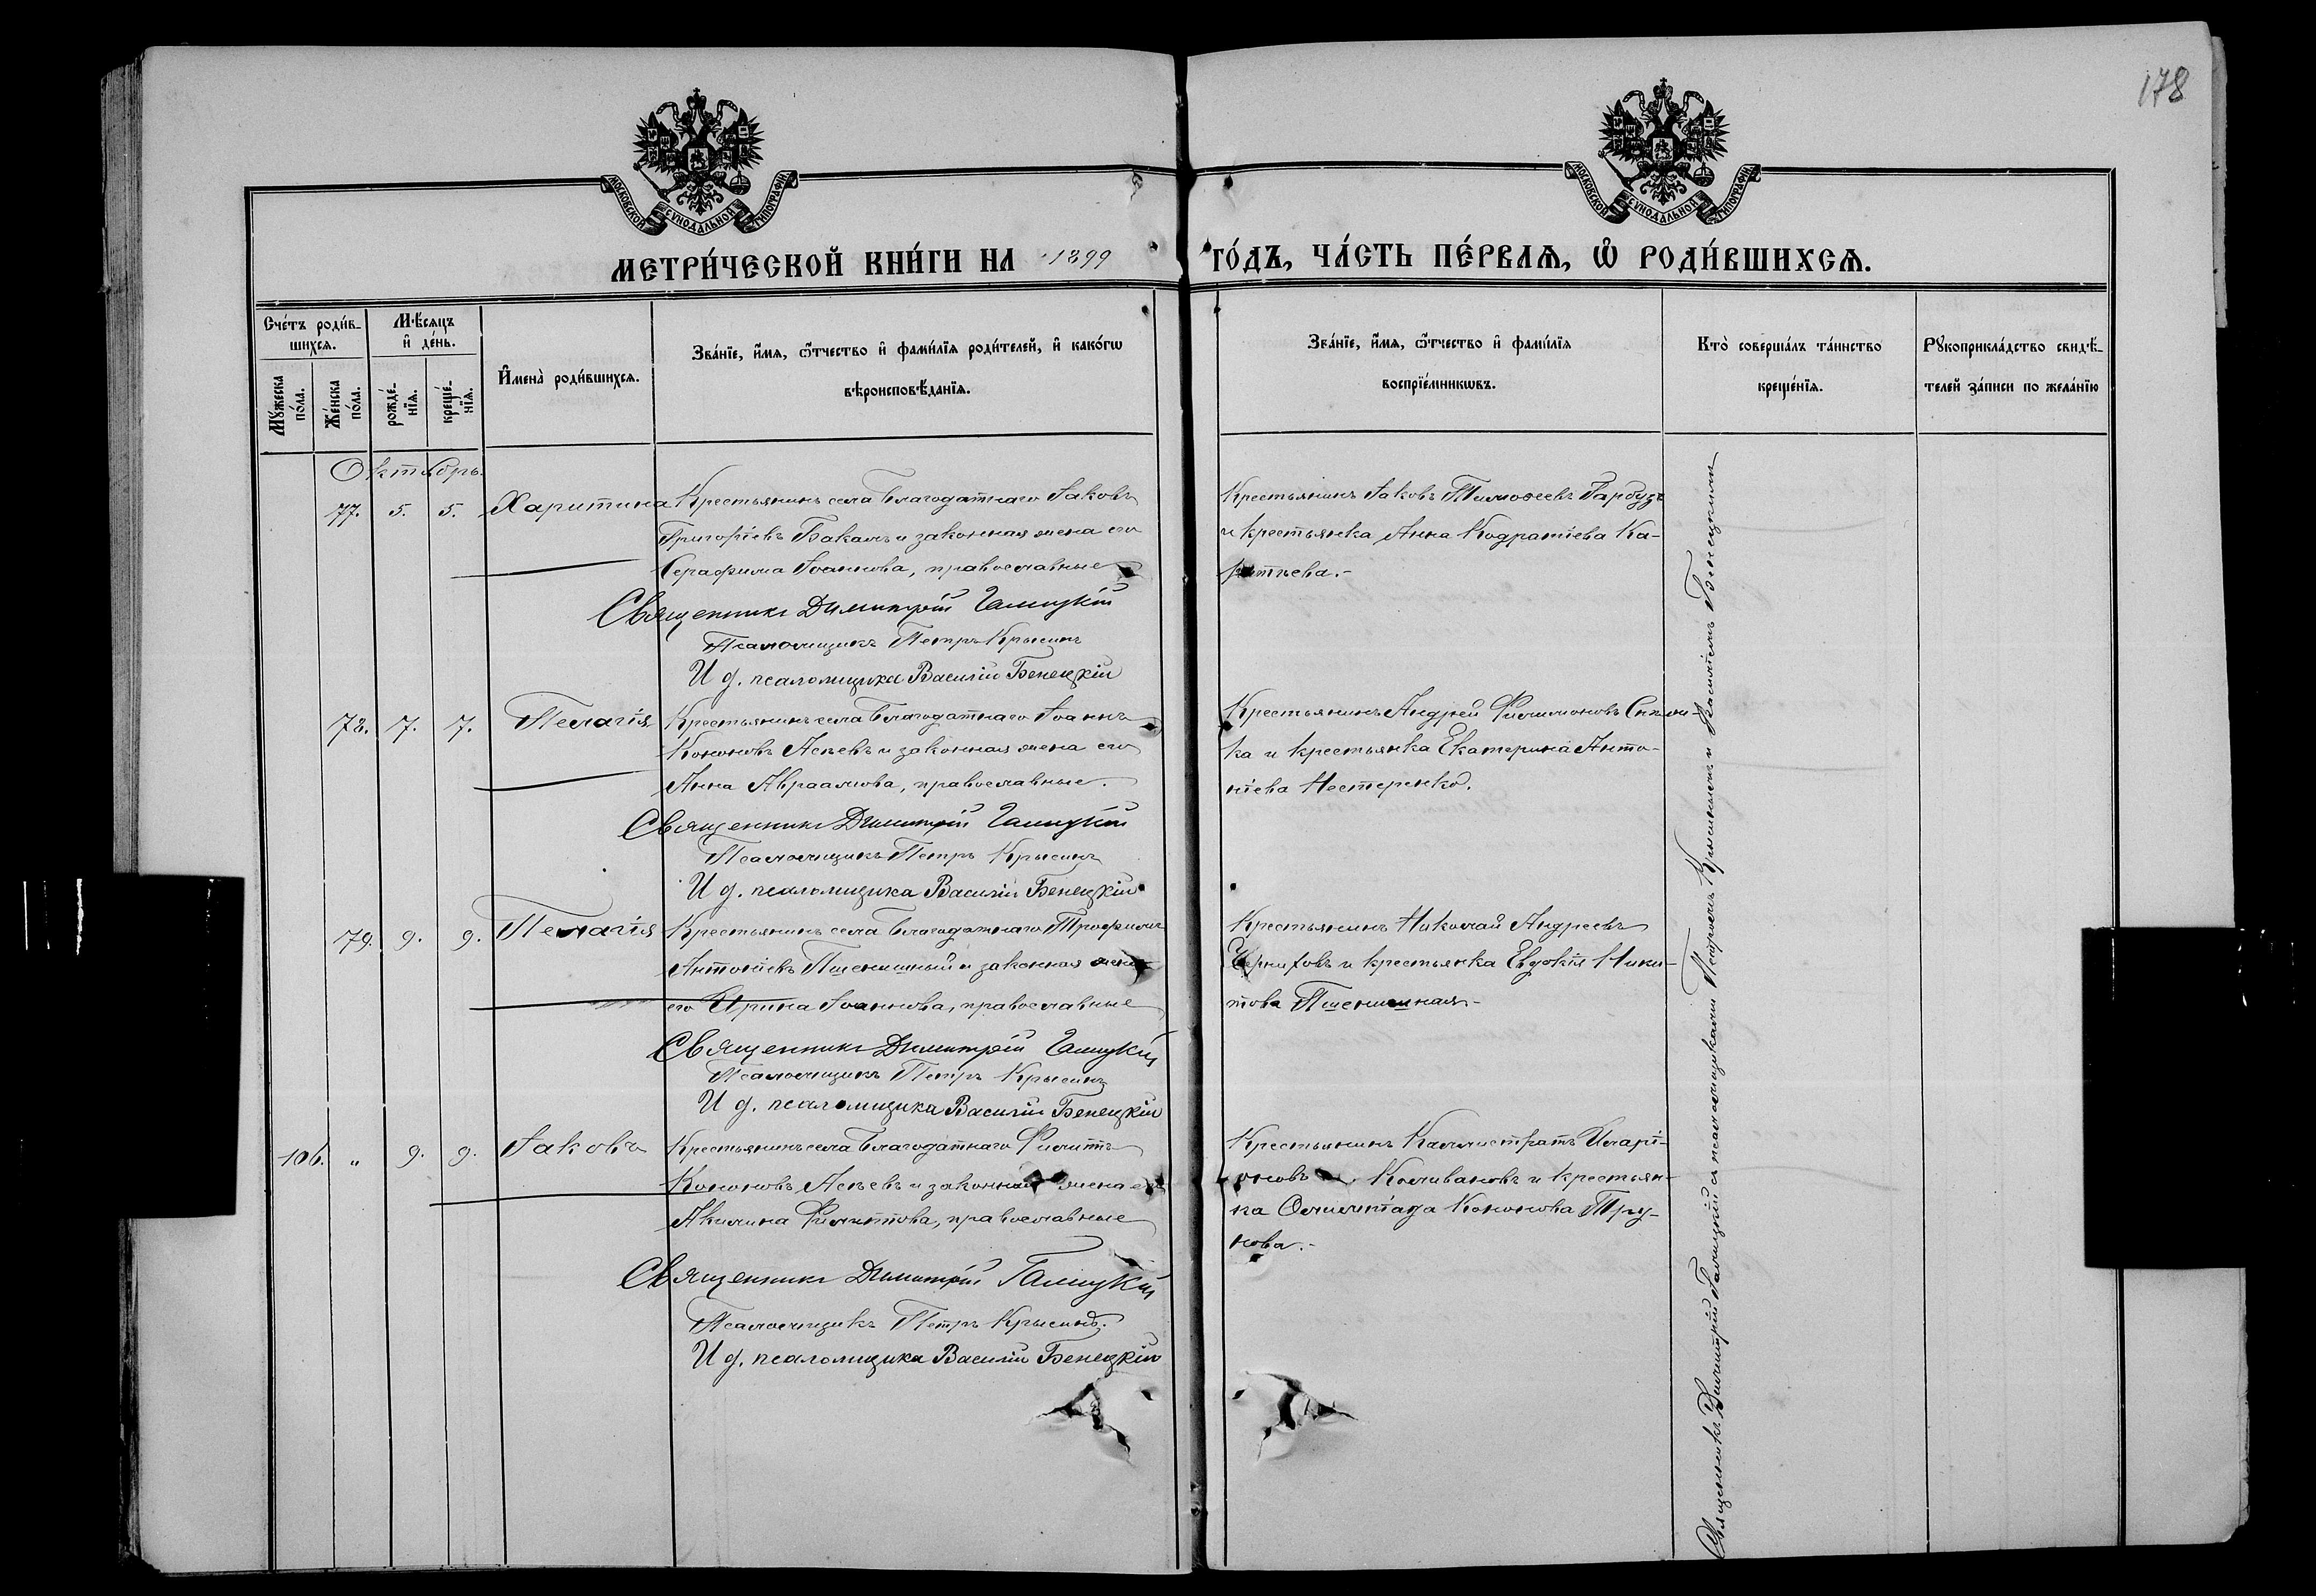 178
МОСКОВСКОЙ СУНОДАЛЬНОЙ ТИПОГРАФІИ
МОСКОВСКОЙ СУНОДАЛЬНОЙ ТИПОГРАФІИ
МЕТРИ́ЧЕСКОЙ КНИ́ГИ НА 1899 ГО́ДЪ, ЧА́СТЬ ПЕ́РВАЯ, Ѡ РОДИ́ВШИХСЯ.
Сче́тъ роди́в-
шихся.
Му́жеска по́ла.
Же́нска по́ла.
Мѣ́сяцъ
и҆ де́нь.
рожде́-
нїя.
креще́-
нїя.
И҆мена̀ роди́вшихся.
Зва́нїе, и҆́мя, ѻ҆́тчество и҆ фами́лїя роди́телей, и҆ како́гѡ
вѣроисповѣ́данїя.
Зва́нїе, и҆́мя, ѻ҆́тчество и҆ фами́лїя
воспрїе́мникѡвъ.
Кто̀ соверша́лъ та́инство
креще́нїя.
Рꙋкоприкла́дство свидѣ́-
телей за́писи по жела́нїю
Октябрь.
77. 5. 5. Харитина Крестьянинъ села Благодатнаго Іаковъ
Григоріевъ Бакай и законная жена его
Серафима Іоаннова, православные
Священникъ Димитрій Галицкій
Псаломщикъ Петръ Крысинъ
И д. псаломщика Василій Бенецкій
Крестьянинъ Іаковъ Тимоѳеевъ Гарбузъ
и крестьянка Анна Кодратіева Ка-
78. 7. 7. Пелагія Крестьянинъ села Благодатнаго Іоаннъ
Кононовъ Асѣевъ и законная жена его
Анна Авраамова, православные.
Священникъ Димитрій Галицкій
Псаломщикъ Петръ Крысинъ
И д. псаломщика Василій Бенецкій
Крестьянинъ Андрей Филимоновъ
ка и крестьянка Екатерина Анто-
ніева Нестеренко.
79. 9. 9. Пелагія Крестьянинъ села Благодатнаго Трофимъ
Антоніевъ Пшеничный и законная жена
его Ирина Іоаннова, православные
Священникъ Димитрій Галицкій
Псаломщикъ Петръ Крысинъ
И д. псаломщика Василій Бенецкій
Крестьянинъ Николай Андреевъ
и крестьянка Евдокія Ники-
това Пшеничная.-
106. „ 9. 9. Іаковъ Крестьянинъ села Благодатнаго Филиппъ
Кононовъ Асѣевъ и законная жена его
Акилина Филиппова, православные
Священникъ Димитрій Галицкій
Псаломщикъ Петръ Крысинъ.
И д. псаломщика Василій Бенецкій
Крестьянинъ Каллистратъ Иларі-
оновъКоливановъ и крестьян-
ка Олимпіада Кононова Тру-
нова.-
Священникъ Димитрій Галицкій съ псаломщиками Петромъ Крысинымъ и Василіемъ Бенецкимъ